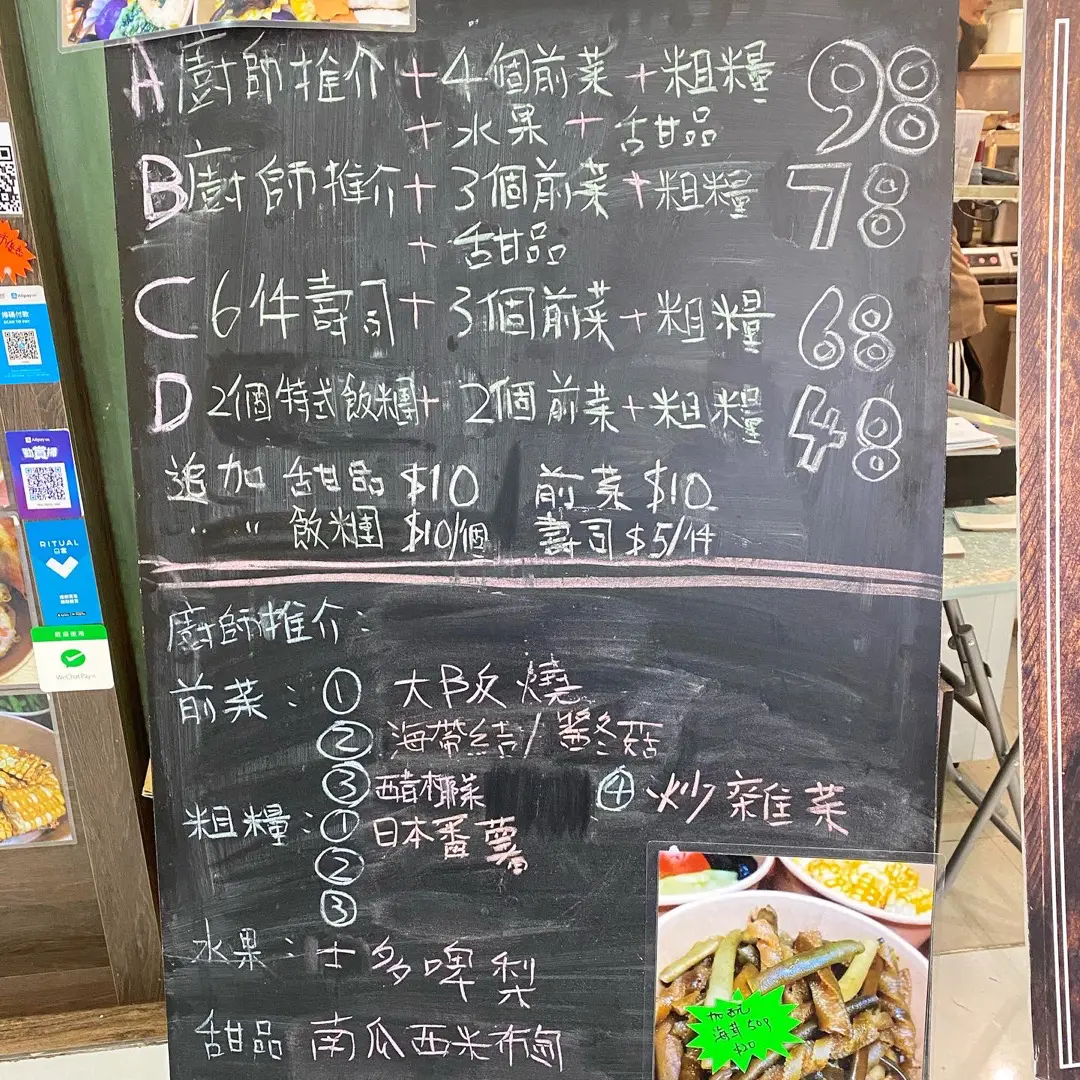 A 廚師推介 + 4個前菜 + 粗糧 98
+ 水果 + 甜品
B 廚師推介 + 3個前菜 + 粗糧 78
+ 甜品
C 6件壽司 + 3個前菜 + 粗糧 68
D 2個特式飯糰 + 2個前菜 + 粗糧 48
追加 甜品 $10 前菜 $10
〃 〃 飯糰 $10/個 壽司 $5/件
廚師推介:
前菜: ① 大阪燒
② 海帶結/醬冬菇
③ 醋椰菜 ④ 炒雜菜
粗糧: ① 日本番薯
②
③
水果: 士多啤梨
甜品 南瓜西米布甸
加配
海茸50g
$20
Alipay
掃碼付款
SCAN TO PAY
Alipay
RITUAL
口當
WeChat Pay